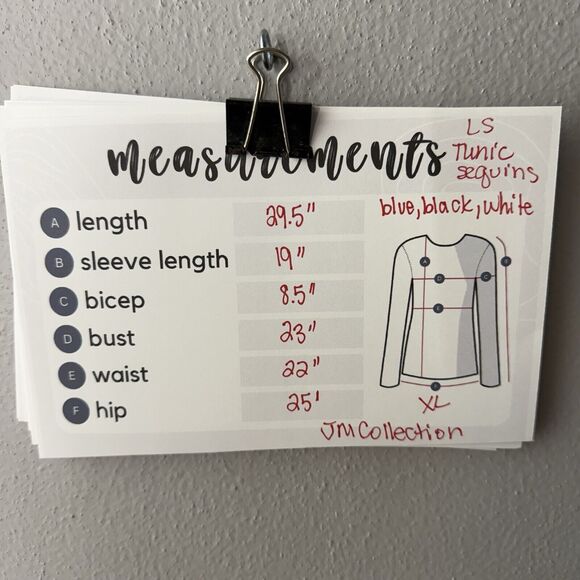 measurements
LS
Tunic
sequins
blue, black, white
A length 29.5"
B sleeve length 19"
C bicep 8.5"
D bust 23"
E waist 22"
F hip 25'
A
D C B
E
F
XL
JM Collection